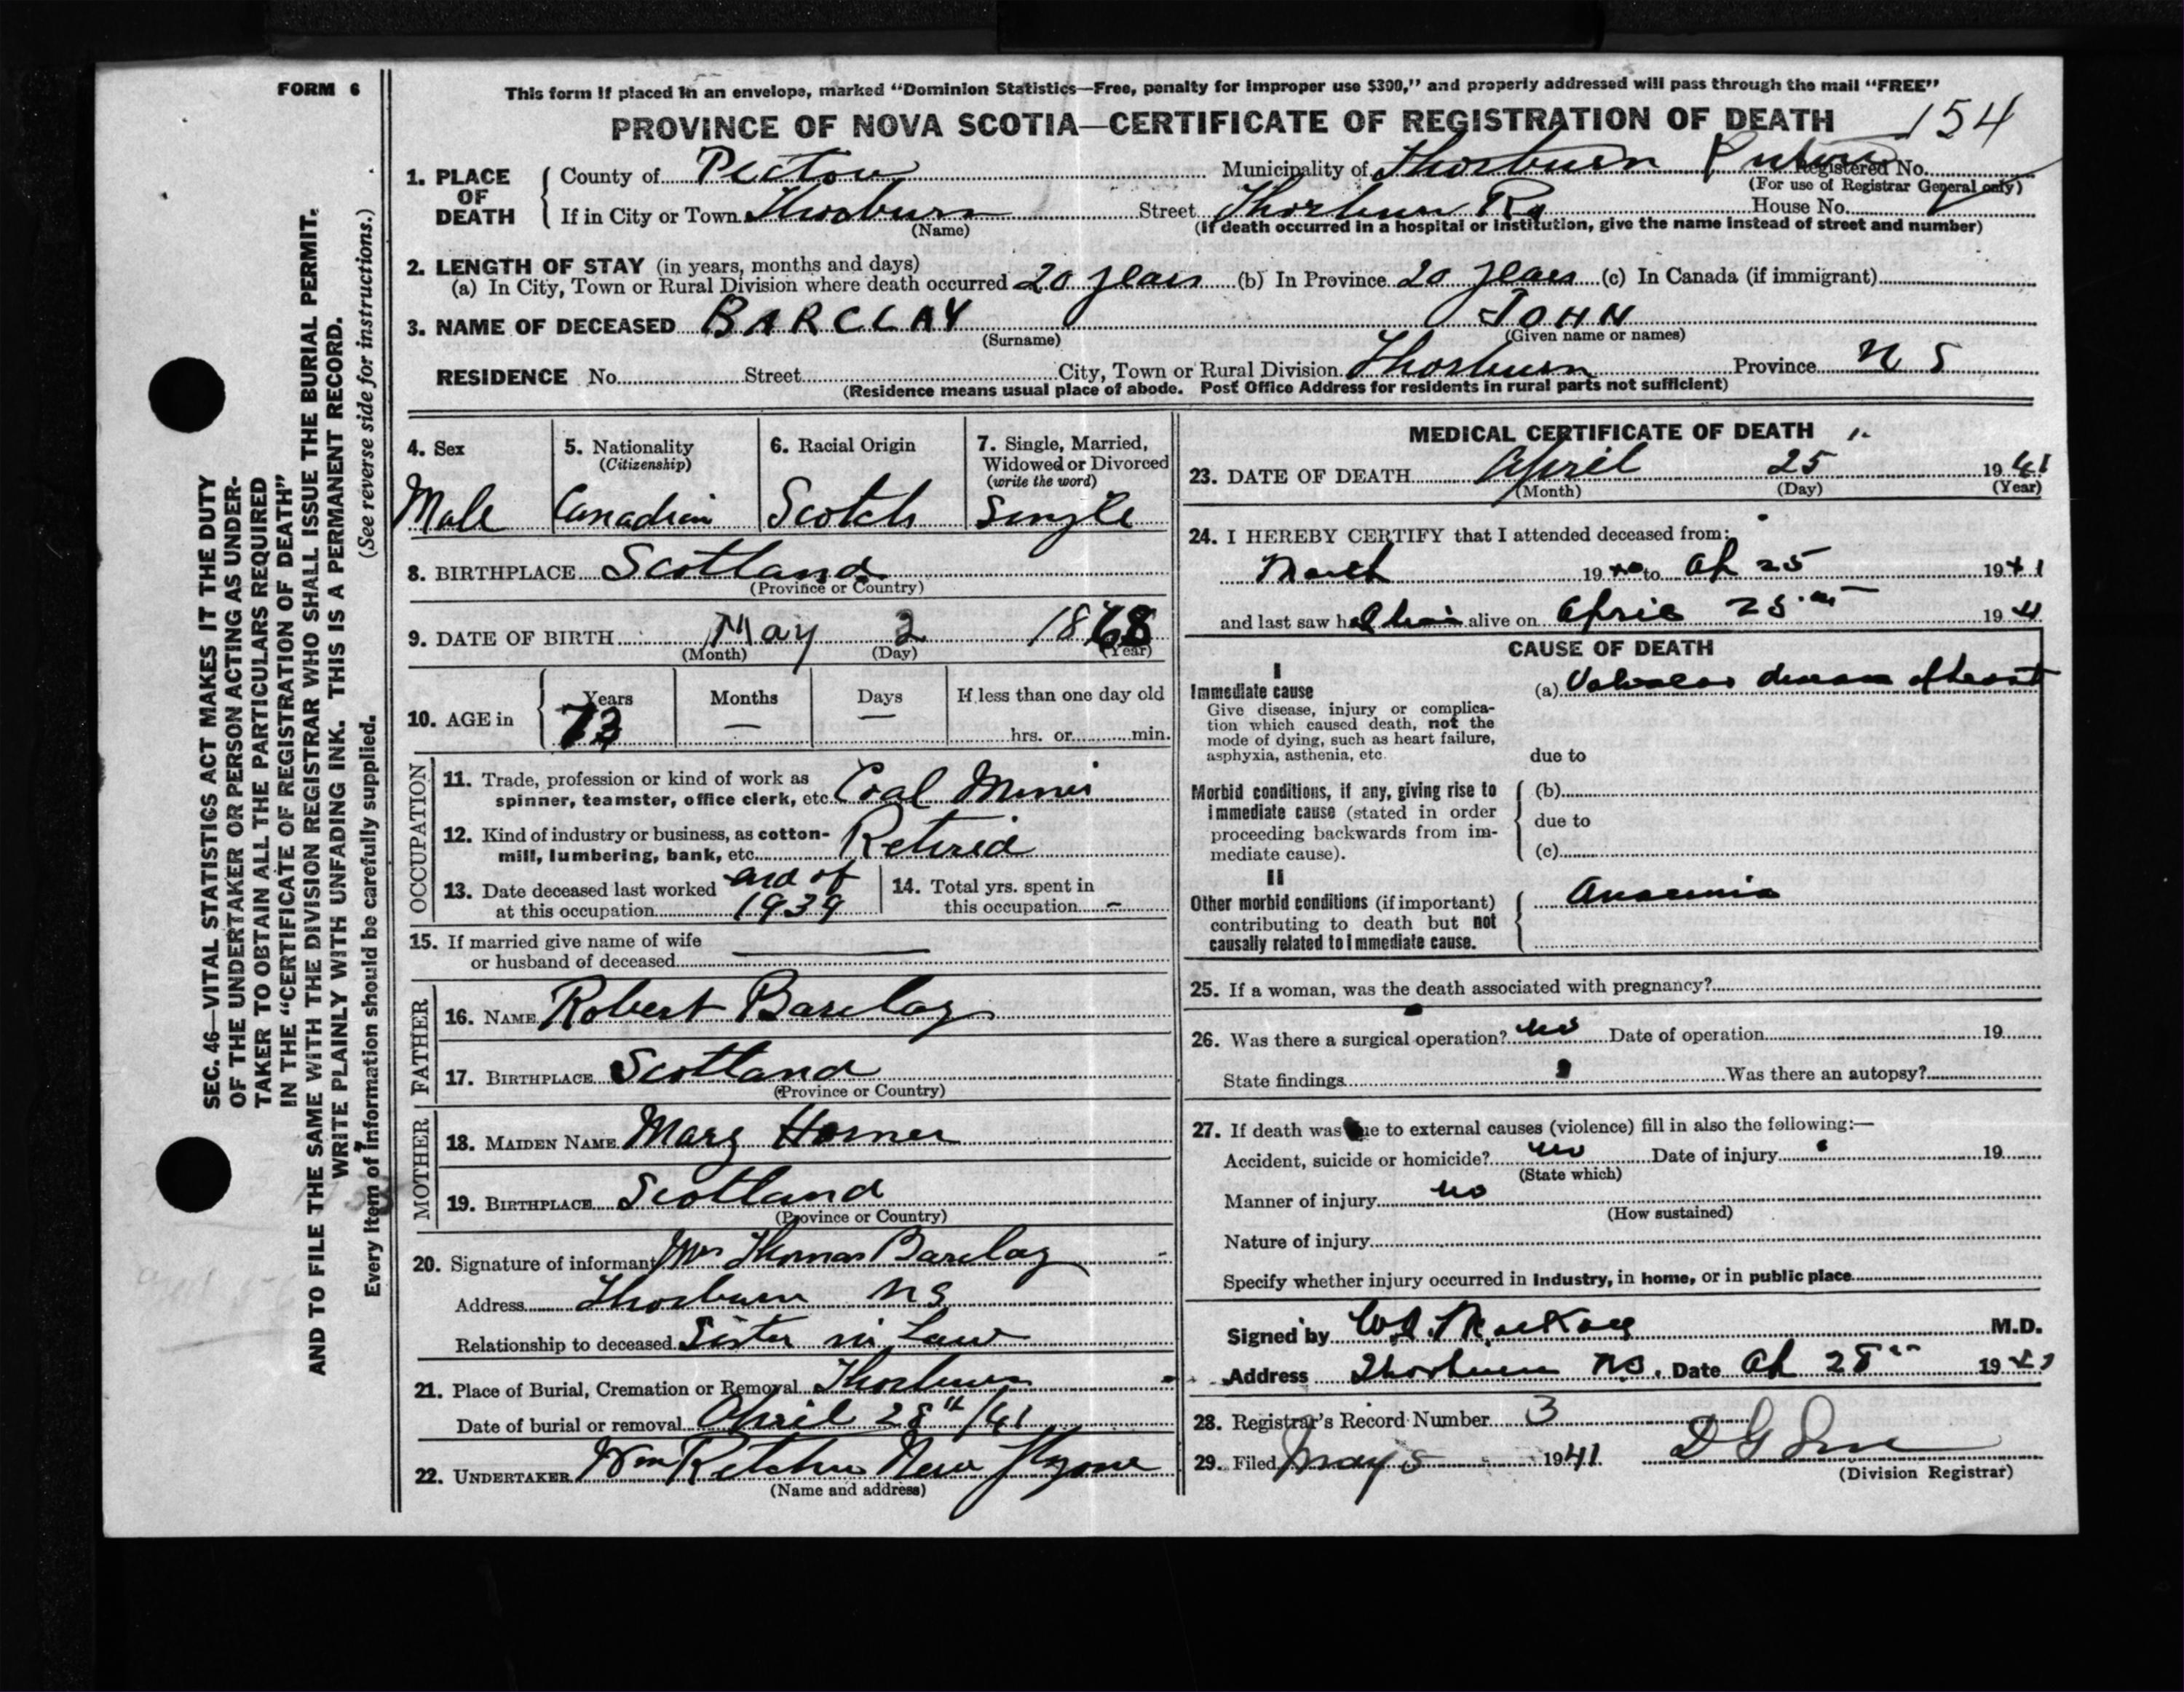 FORM 6
This form if placed in an envelope, marked "Dominion Statistics—Free, penalty for improper use $300," and properly addressed will pass through the mail "FREE"
PROVINCE OF NOVA SCOTIA—CERTIFICATE OF REGISTRATION OF DEATH 154
1. PLACE OF DEATH
County of Pictou Municipality of Thorburn Pictou Registered No.
(For use of Registrar General only)
If in City or Town Thorburn Street Thorburn Rd House No.
(Name) (If death occurred in a hospital or institution, give the name instead of street and number)
2. LENGTH OF STAY (in years, months and days)
(a) In City, Town or Rural Division where death occurred 20 years (b) In Province 20 years (c) In Canada (if immigrant)
3. NAME OF DECEASED BARCLAY JOHN
(Surname) (Given name or names)
RESIDENCE No. Street City, Town or Rural Division Thorburn Province N S
(Residence means usual place of abode. Post Office Address for residents in rural parts not sufficient)
4. Sex Male
5. Nationality (Citizenship) Canadian
6. Racial Origin Scotch
7. Single, Married, Widowed or Divorced (write the word) Single
8. BIRTHPLACE Scotland
(Province or Country)
9. DATE OF BIRTH May 2 1868
(Month) (Day) (Year)
10. AGE in Years 73 Months — Days — If less than one day old hrs. or min.
OCCUPATION
11. Trade, profession or kind of work as spinner, teamster, office clerk, etc. Coal Miner
12. Kind of industry or business, as cotton-mill, lumbering, bank, etc. Retired
13. Date deceased last worked at this occupation end of 1939
14. Total yrs. spent in this occupation —
15. If married give name of wife or husband of deceased —
FATHER
16. NAME Robert Barclay
17. BIRTHPLACE Scotland
(Province or Country)
MOTHER
18. MAIDEN NAME Mary Horner
19. BIRTHPLACE Scotland
(Province or Country)
20. Signature of informant Mrs Thomas Barclay
Address Thorburn N S
Relationship to deceased Sister in Law
21. Place of Burial, Cremation or Removal Thorburn
Date of burial or removal April 28th/41
22. UNDERTAKER Wm New
(Name and address)
MEDICAL CERTIFICATE OF DEATH
23. DATE OF DEATH April 25 1941
(Month) (Day) (Year)
24. I HEREBY CERTIFY that I attended deceased from:
March 1940 to Ap 25 1941
and last saw h alive on April 25 1941
CAUSE OF DEATH
I
Immediate cause
Give disease, injury or complication which caused death, not the mode of dying, such as heart failure, asphyxia, asthenia, etc.
(a) Valvular disease of heart
due to
Morbid conditions, if any, giving rise to immediate cause (stated in order proceeding backwards from immediate cause).
(b)
due to
(c)
II
Other morbid conditions (if important) contributing to death but not causally related to immediate cause.
Anaemia
25. If a woman, was the death associated with pregnancy?
26. Was there a surgical operation? no Date of operation 19
State findings Was there an autopsy?
27. If death was due to external causes (violence) fill in also the following:—
Accident, suicide or homicide? no Date of injury 19
(State which)
Manner of injury no
(How sustained)
Nature of injury
Specify whether injury occurred in industry, in home, or in public place
Signed by MacKay M.D.
Address Thorburn N.S. Date Ap 28 1941
28. Registrar's Record Number 3
29. Filed May 5 1941
(Division Registrar)
SEC. 46—VITAL STATISTICS ACT MAKES IT THE DUTY
OF THE UNDERTAKER OR PERSON ACTING AS UNDER-
TAKER TO OBTAIN ALL THE PARTICULARS REQUIRED
IN THE "CERTIFICATE OF REGISTRATION OF DEATH"
AND TO FILE THE SAME WITH THE DIVISION REGISTRAR WHO SHALL ISSUE THE BURIAL PERMIT.
WRITE PLAINLY WITH UNFADING INK. THIS IS A PERMANENT RECORD.
Every item of information should be carefully supplied. (See reverse side for instructions.)